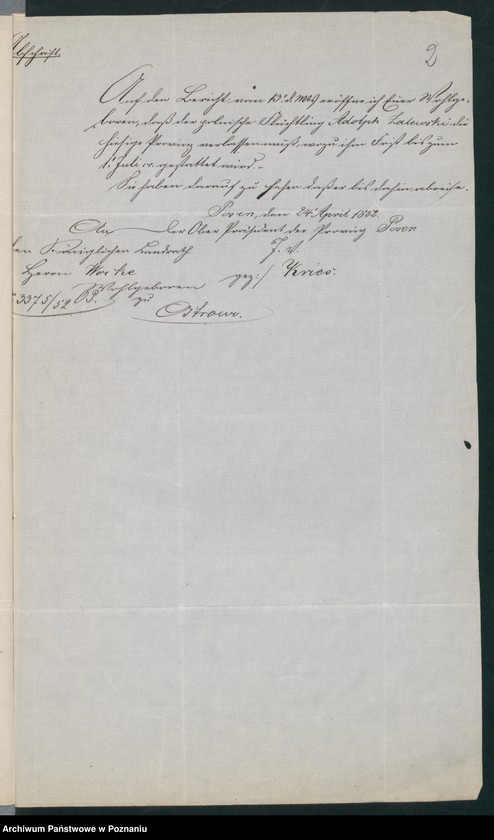 Abschrift.
2
Auf den Bericht vom 13. d. Mts eröffne ich Euer Wohlge-
boren, daß der polnische Flüchtling Adolph Zalewski die
hiesige Provinz verlassen muß, wozu ihm Frist bis zum
1. Juli cr. gestattet wird.
Sie haben darauf zu sehen daß er bis dahin abreise.
Posen, den 24. April 1852.
Der Ober Präsident der Provinz Posen
J. V.
gez:/ Kries.
An
den Königlichen Landrath
Herrn
Wohlgeboren
zu
Ostrowo.
3375/52
Archiwum Państwowe w Poznaniu